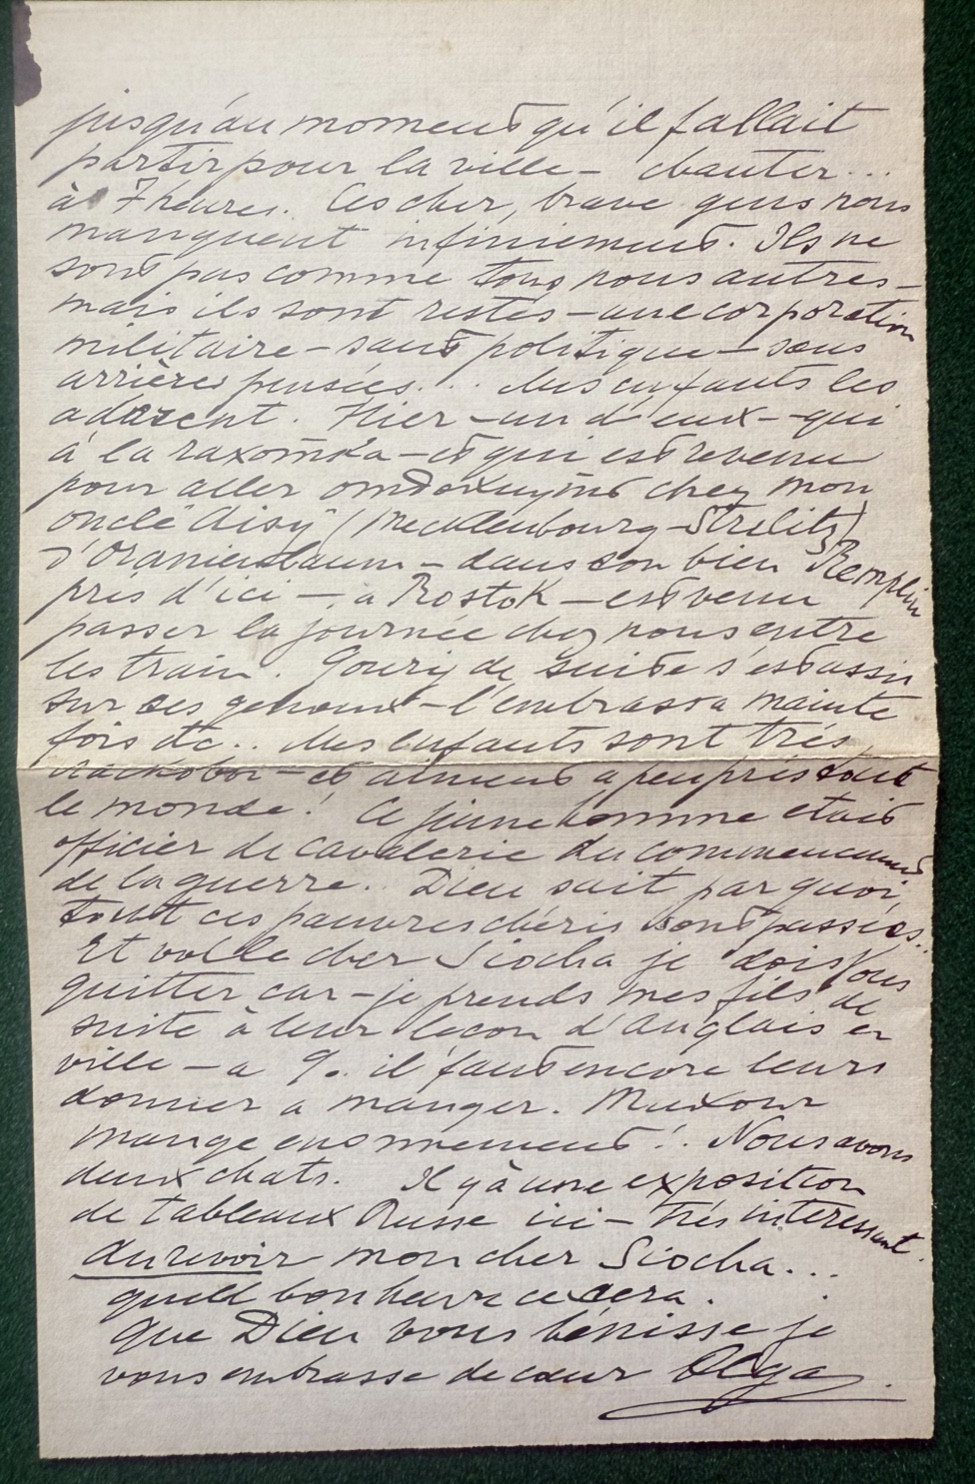 jusqu'au moment qu'il fallait
partir pour la ville – chanter...
à 7 heures. Ces cher, brave gens nous
manquent infiniement. Ils ne
sont pas comme tous nous autres –
mais ils sont restés – une corporation
militaire – sans politique – sans
arrières pensées... Mes enfants les
adorent. Hier – un d'eux – qui
à la – et qui est revenu
pour aller chez mon
oncle "Aisy" (Mecklenbourg-Strelitz)
d'Oranienbaum – dans son bien Remplin
près d'ici – a Rostok – est venu
passer la journée chez nous entre
les train. Goury de suite s'est assis
sur ses genoux – l'embrassa mainte
fois etc.. Mes enfants sont très
– et aiment a peu près tout
le monde! Ce jeune homme etait
officier de cavalerie du commencement
de la guerre. Dieu sait par quoi,
tout ces pauvres chéris sont passées..
Et voila cher Siocha je dois Vous
quitter car – je prends mes fils de
suite à leur leçon d'Anglais en
ville – a 9. il faut encore leurs
donner a manger. Тихон
mange enormement! Nous avons
deux chats. Il y à une exposition
de tableaux Russe ici – très interessant.
Au revoir mon cher Siocha...
quell bonheure ce sera.
Que Dieu vous bénisse je
vous embrasse de cœur Olga.